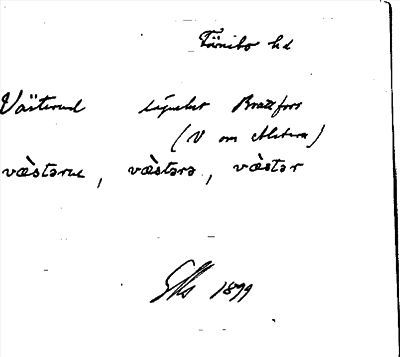 Färnebo hd
Västerud lägenhet Brattfors
(V om Alstern)
væ̀stərue, væ̀stərə, væ̀stər
1899